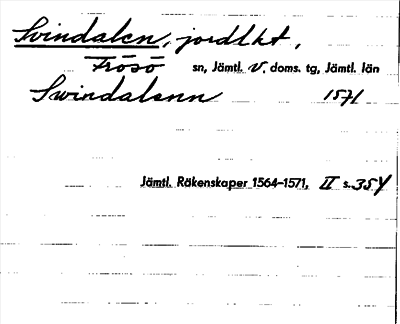 Svindalen, jordlkt,
Frösö sn, Jämtl. V. doms. tg, Jämtl. län
Swindalenn 1571
Jämtl. Räkenskaper 1564–1571, II s. 354